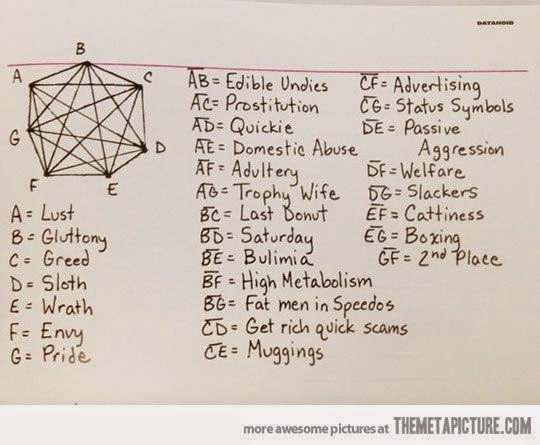 DATANOID
B
A
C
G
D
F
E
A = Lust
B = Gluttony
C = Greed
D = Sloth
E = Wrath
F = Envy
G = Pride
AB = Edible Undies
AC = Prostitution
AD = Quickie
AE = Domestic Abuse
AF = Adultery
AG = Trophy Wife
BC = Last Donut
BD = Saturday
BE = Bulimia
BF = High Metabolism
BG = Fat men in Speedos
CD = Get rich quick scams
CE = Muggings
CF = Advertising
CG = Status Symbols
DE = Passive
Aggression
DF = Welfare
DG = Slackers
EF = Cattiness
EG = Boxing
GF = 2nd Place
more awesome pictures at THEMETAPICTURE.COM